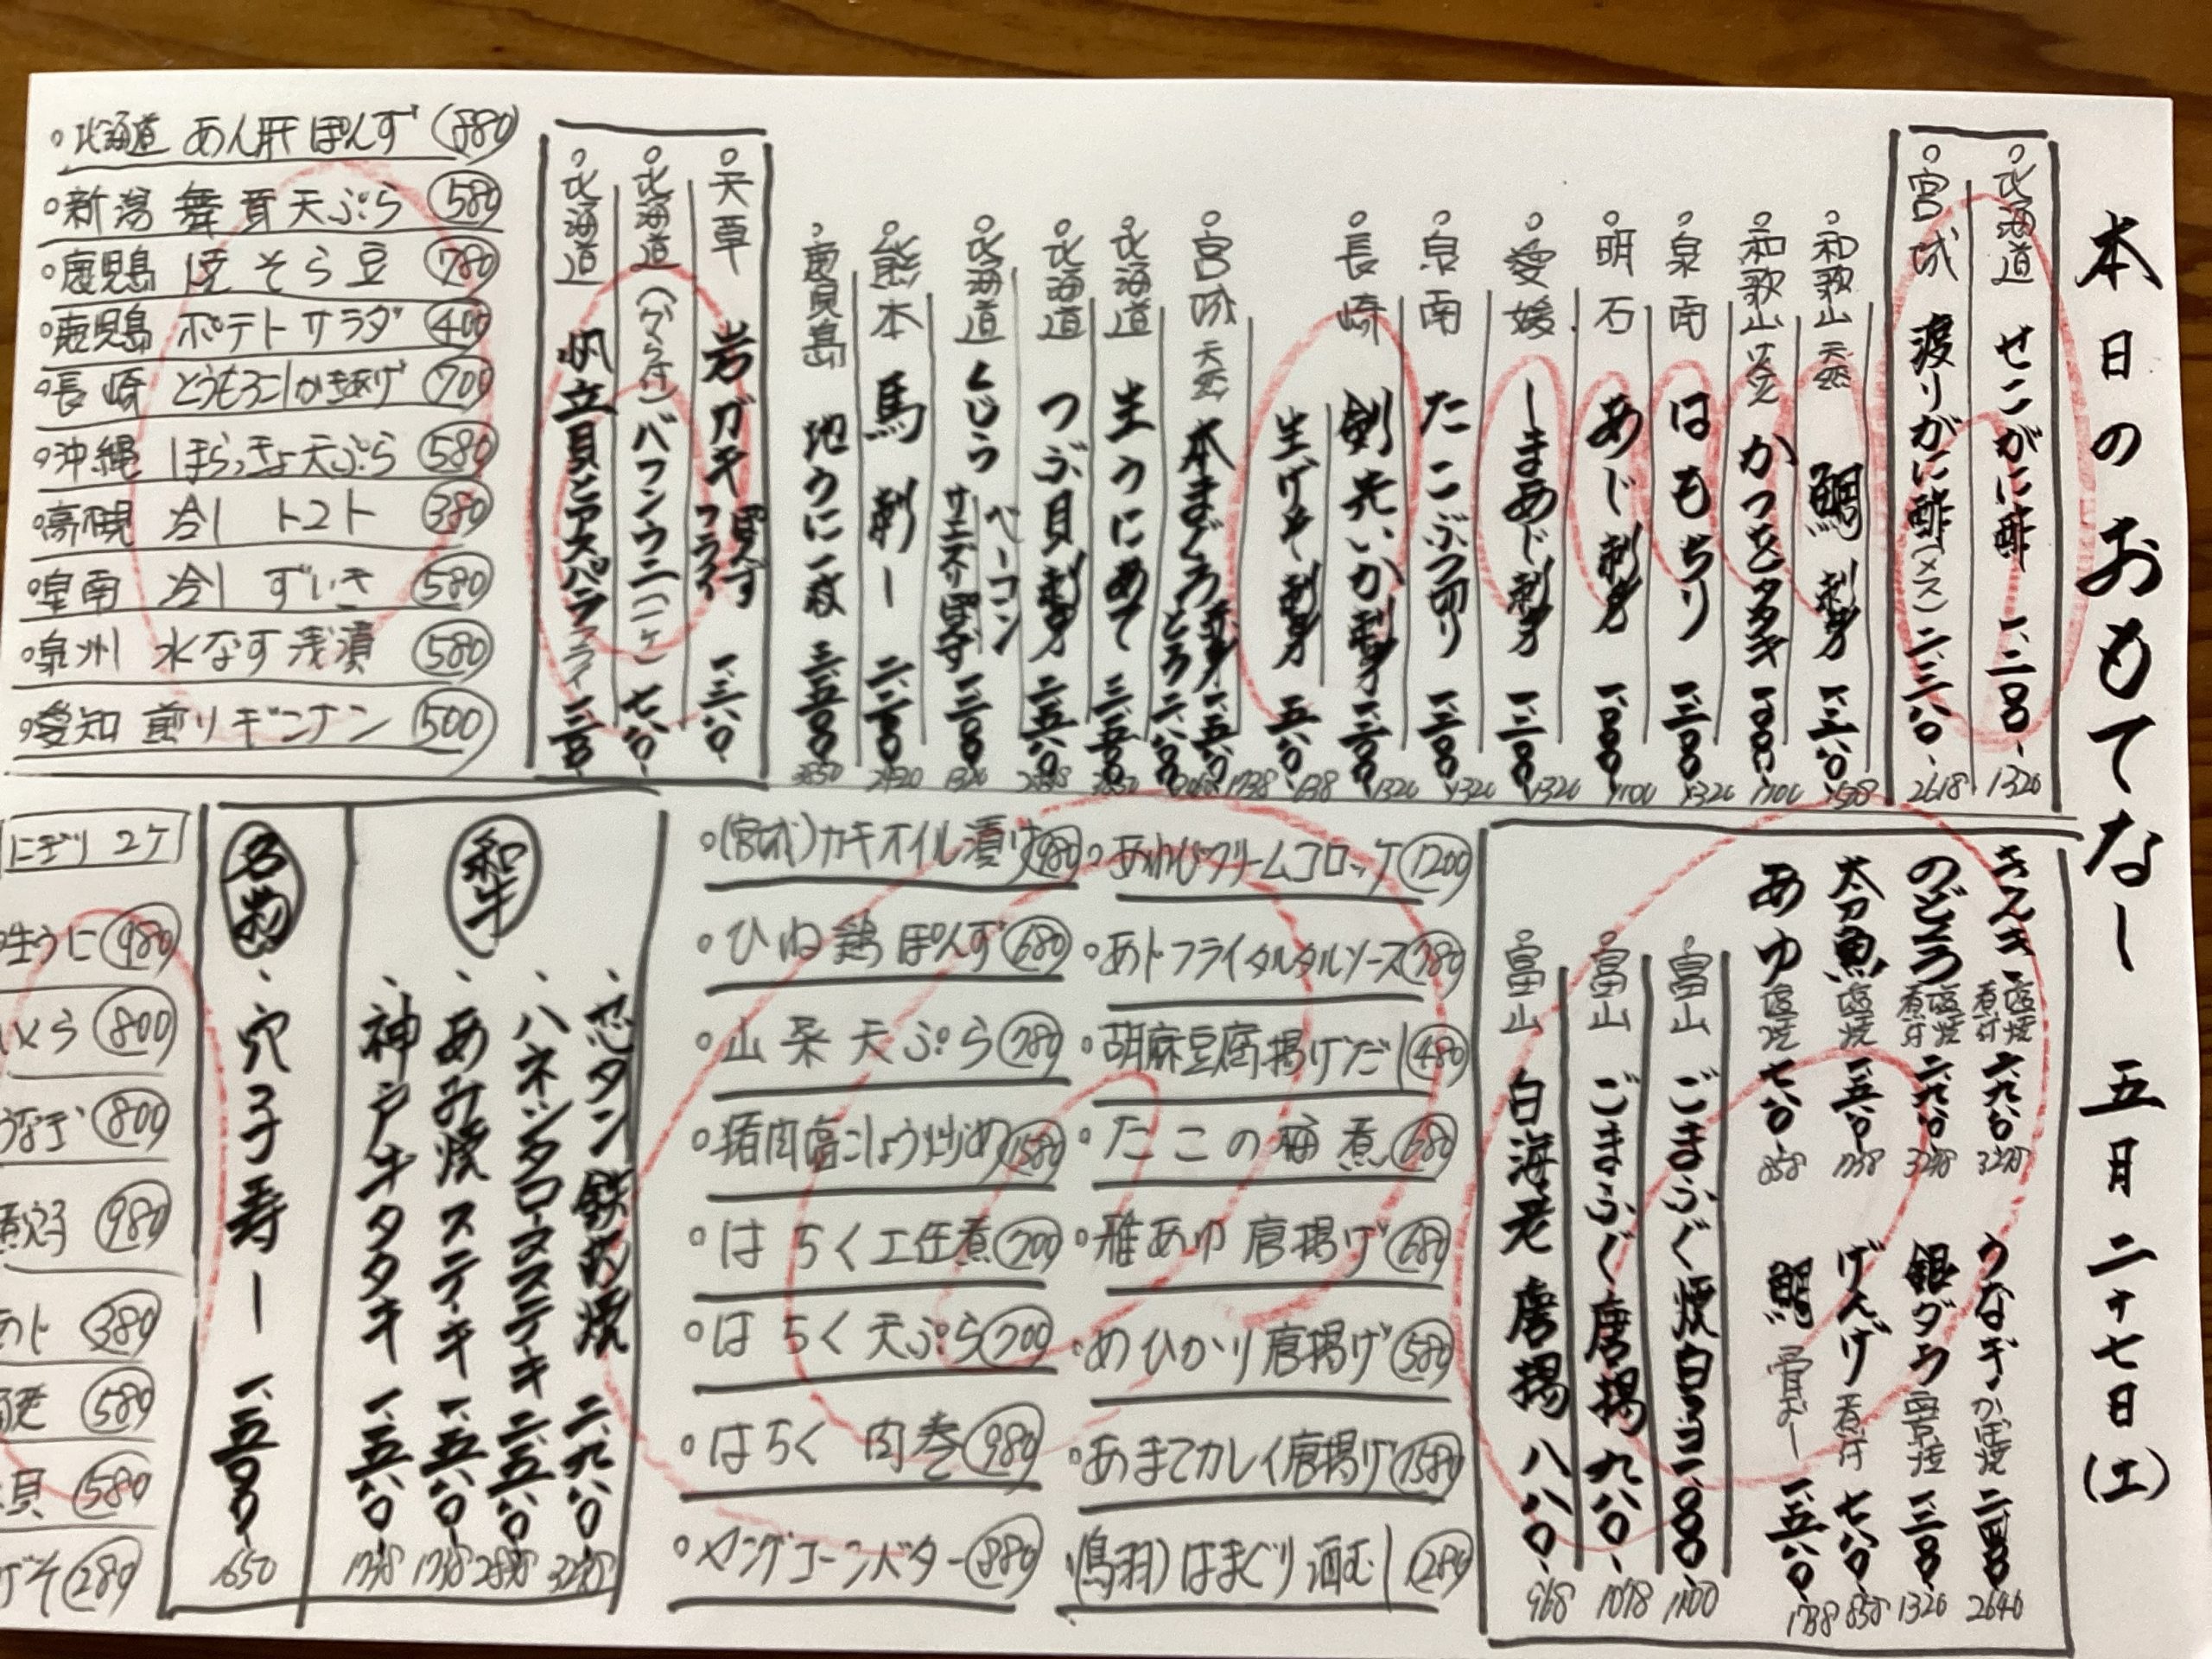 本日のおもてなし 五月二十七日(土)
北海道 せこがに酢 一、二〇〇 1320
宮城 渡りがに酢(メス) 二、三八〇 2618
和歌山 天然 鯛 刺身
和歌山 かつをタタキ 一、〇〇〇 1100
泉南 はもちり 一、二〇〇 1320
明石 あじ刺身 一、〇〇〇 1100
愛媛 しまあじ刺身 一、二〇〇 1320
泉南 たこぶつ切り 一、二〇〇 1320
長崎 剣先いか刺身 一、二〇〇 1320
生げそ刺身 五八〇 638
宮城 天然 本まぐろ 赤身 一、五八〇 1738
とろ
北海道 生うにあて 三、五〇〇 3850
北海道 つぶ貝刺身 二、五八〇 2838
北海道 くじら ベーコン
サエズリぽんず 一、二〇〇 1320
熊本 馬刺し 二、二〇〇 2420
鹿児島 地うに一枚 三、五〇〇 3850
天草 岩ガキ ぽんず
フライ
北海道 バフンウニ(一ヶ) 七八〇
北海道 帆立貝とアスパラフライ
北海道 あん肝ぽんず 880
新潟 舞茸天ぷら 580
鹿児島 焼そら豆 780
鹿児島 ポテトサラダ 400
長崎 とうもろこしかきあげ 700
沖縄 島らっきょ天ぷら 580
冷しトマト 380
泉南 冷しずいき 580
泉州 水なす浅漬 580
愛知 煎りギンナン 500
きんき 塩焼 煮付 二、九八〇 3278
のどぐろ 塩焼 煮付 二、九八〇 3278
太刀魚 塩焼 一、五八〇 1738
あゆ 塩焼 七八〇 858
うなぎ かば焼 二、四〇〇 2640
銀ダラ 西京焼 一、二〇〇 1320
げんげ 煮付 七八〇 858
鯛 骨むし 一、五八〇 1738
富山 ごまふぐ焼白子 一、〇〇〇 1100
富山 ごまふぐ唐揚 九八〇 1078
富山 白海老 唐揚 八八〇 968
あわびクリームコロッケ 1200
あじフライタルタルソース 780
胡麻豆腐揚げだし 480
たこの梅煮 680
稚あゆ 唐揚げ 680
めひかり唐揚げ 580
あまてカレイ唐揚げ 1580
(鳥羽)はまぐり酒むし 1280
(宮城)カキオイル漬け 980
ひね鶏ぽんず 680
山菜天ぷら 780
猪肉塩こしょう炒め 1580
はちく土佐煮 700
はちく天ぷら 700
はちく肉巻 980
ヤングコーンバター 880
和牛
芯タン鉄板焼 二、九八〇 3278
ハネシタロースステーキ 二、五八〇 2838
あみ焼ステーキ 一、五八〇 1738
神戸牛タタキ 一、五八〇 1738
名物
穴子寿し 一、五〇〇 1650
にぎり2ケ
生うに 980
いくら 800
うなぎ 800
煮穴子 980
あじ 380
580
貝 580
げそ 280